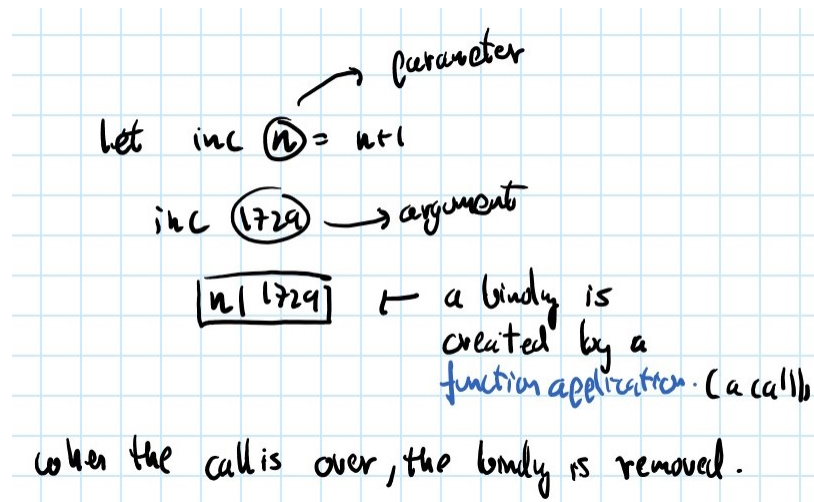 parameter
let inc n = n+1
inc 1729 → argument
n | 1729 ← a binding is
created by a
function application. (a call)
when the call is over, the binding is removed.